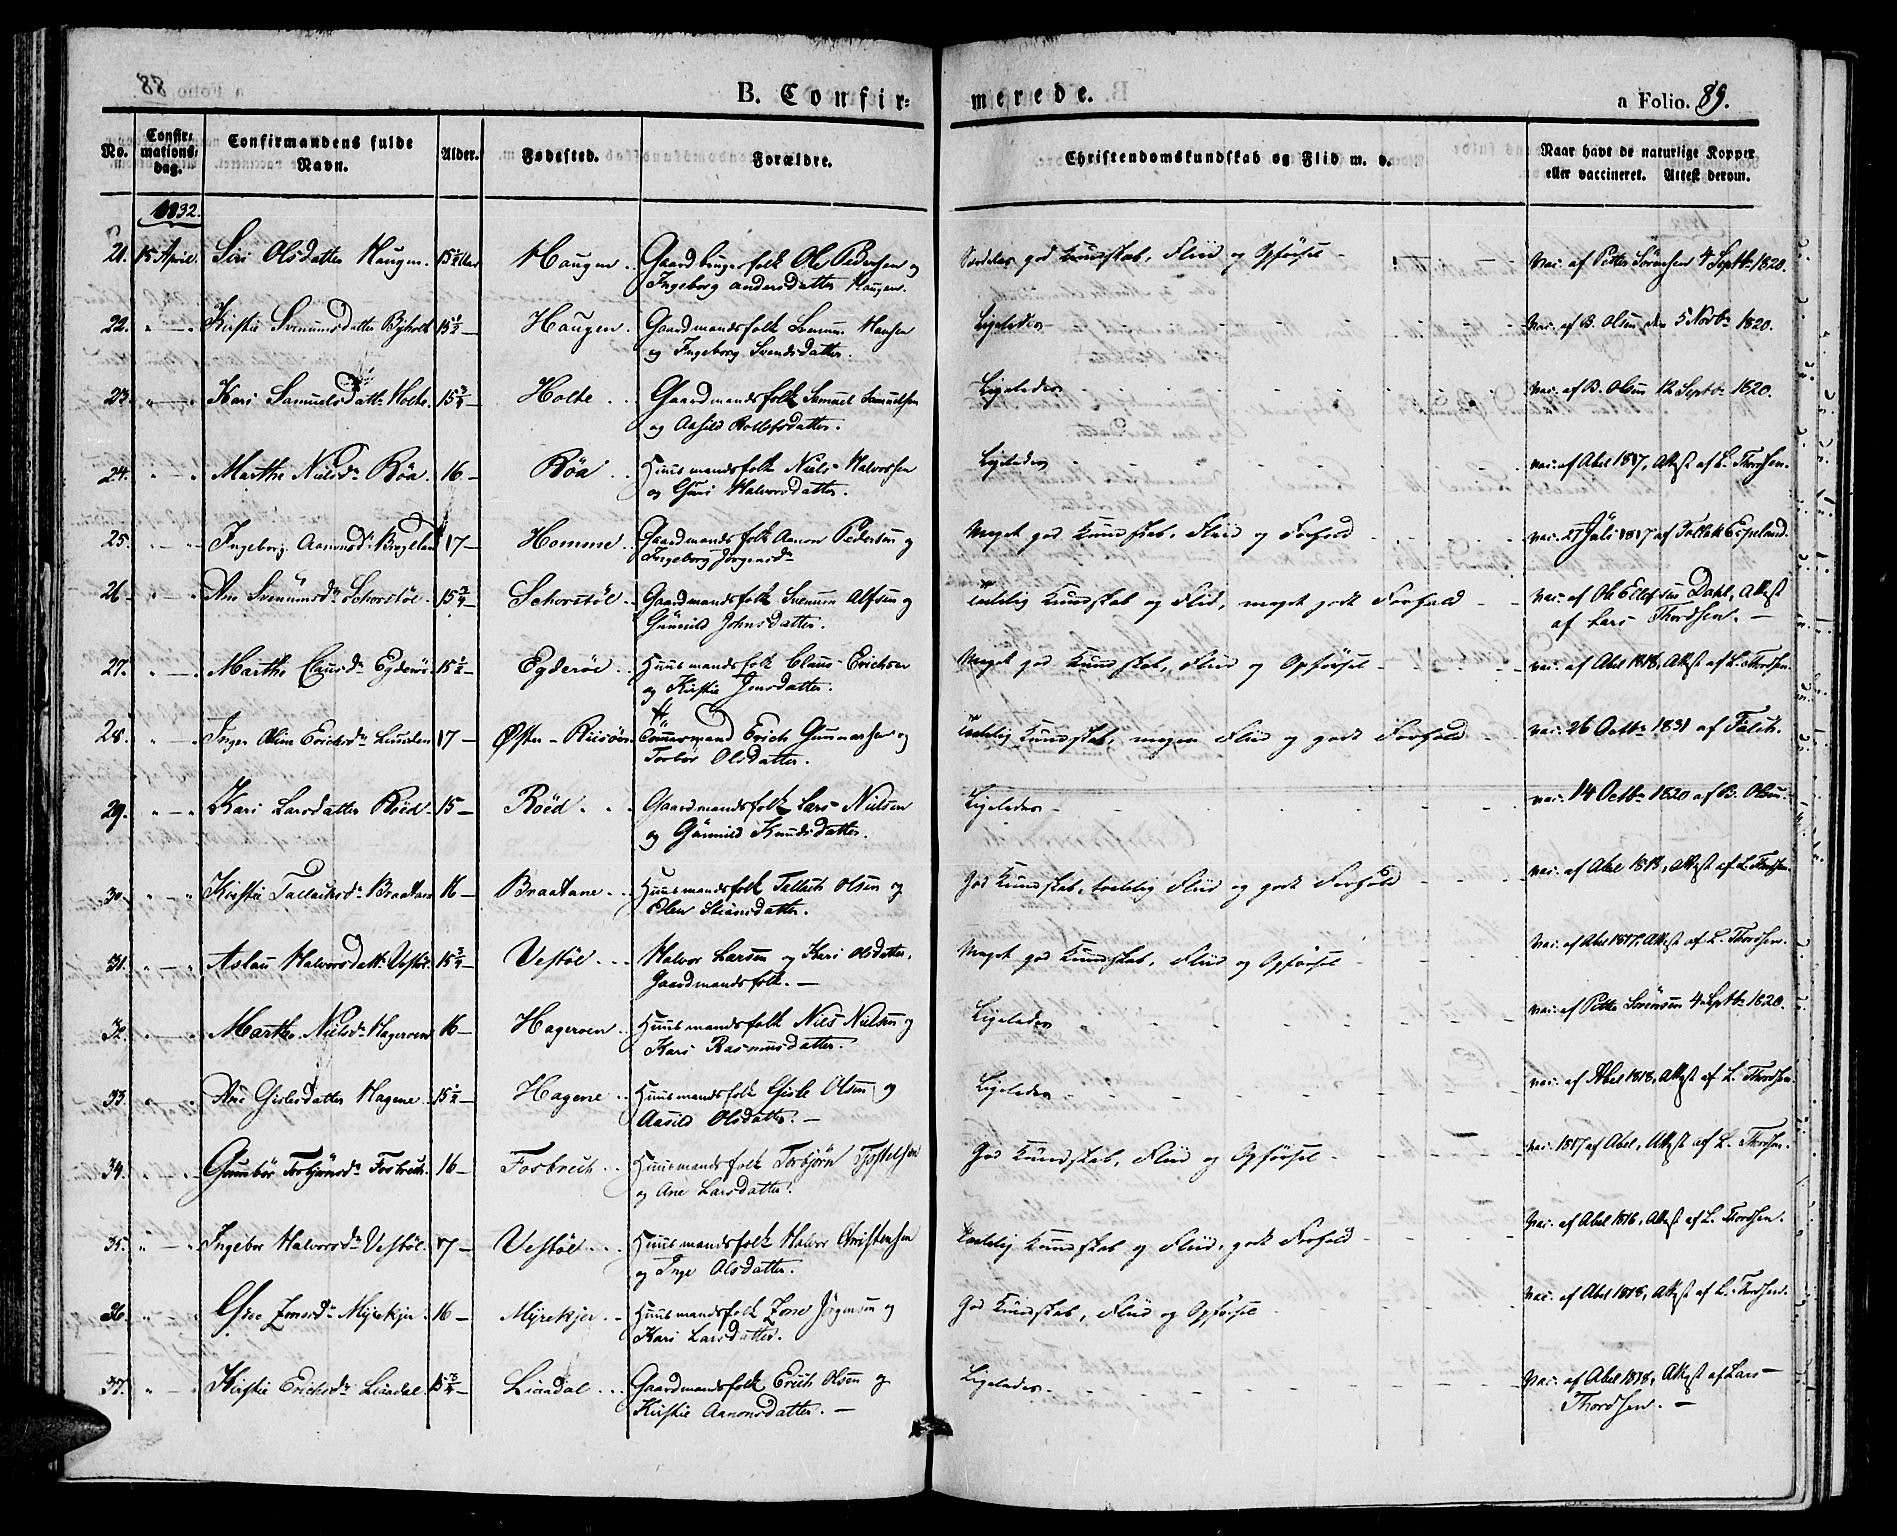 88
B. Confir=
merede.
a Folio. 89.
No. Confir=mations=dag. Confirmandens fulde Navn. Alder. Fødested. Forældre. Christendomskundskab og Flid m. v. Naar havt de naturlige Kopper eller vaccineret. Attest derom.
1832.
21. 15 April. Siri Olsdatter Haugen. 15 Haugen Gaardbrugerfolk Ole Pedersen og Ingeborg Andersdatter Haugen. Særdeles god Kundskab, Fliid og Opførsel vac. af Petter Sørensen 4 Septbr 1820.
22. " — " Kirstie Svenumsdatter 15½ — Haugen Gaardmandsfolk Svenum Hansen og Ingeborg Svendsdatter. Ligeledes vac. af B. Olsen den 5 Novbr 1820.
23. " — " Kari Samuelsdattr Holte. 15¾ — Holte Gaardmandsfolk Samuel Samuelsen og Aasild Rollefsdatter. Ligeledes vac. af B. Olsen 12 Septbr 1820.
24. " — " Marthe Nielsdr Röa. 16 — Röa Huusmandsfolk Niels Halvorsen og Guri Halvorsdatter. Ligeledes vac. af Abel 1817, Attest af L. Thordsen.
25. " — " Ingeborg Aanonsdr 17 — Homme Gaardmandsfolk Aanon Pedersen og Ingeborg Jørgensdr Meget god Kundskab, Fliid og Forhold vac. 27 Juli 1817 af Tallak Espeland.
26 " — " Ane Svenumsdr Schorstöl. 15¾ — Schorstöl Gaardmandsfolk Svenum Alfsen og Gunild Johnsdatter. Taalelig Kundskab og Flid, meget godt Forhold vac. af Ole Ellefsen Dahl, Attest af Lars Thordsen. —
27. " — " Marthe Clausdr Egderöe 15½ — Egderöe Huusmandsfolk Claus Erichsen og Kirstie Jensdatter. Meget god Kundskab, Fliid og Opførsel vac. af Abel 1818, Attest af L. Thordsen.
28. " — " Inger Oline Erichsdr Lunden 17 — Øster-Riisöer Erich Gunnersen og Torbör Olsdatter. Taalelig Kundskab, megen Fliid og godt Forhold vac. 26 Octbr 1831 af Falch.
29. " — " Kari Larsdatter Röed. 15 — Röed Gaardmandsfolk Lars Nielsen og Gunnild Knudsdatter. Ligeledes vac. 14 Octbr 1820 af B. Olsen.
30. " — " Kirstie Tallachsdr Braatane 16 — Braatane Huusmandsfolk Tallach Olsen og Olsdatter. God Kundskab, taalelig Fliid og godt Forhold vac. af Abel 1818, Attest af L. Thordsen.
31. " — " Aslau Halvorsdattr Vestöl. 15¾ — Vestöl Halvor Larsen og Kari Olsdatter, Gaardmandsfolk. — Meget god Kundskab, Fliid og Opførsel vac. af Abel 1817, Attest af L. Thordsen.
32. " — " Marthe Nielsdr Hageroen 16 — Hageroen Huusmandsfolk Niels Nielsen og Kari Rasmusdatter. Ligeledes vac. af Petter Sörensen 4 Septbr 1820.
33. " " Ane Gislesdatter Hagene. 15½ — Hagene Huusmandsfolk Gisle Olsen og Aasild Olsdatter. — Ligeledes vac. af Abel 1818, Attest af L. Thordsen.
34. " — " Gunbör Torbjörnsdr Fosbrech. 16 — Fosbrech Huusmandsfolk Torbjörn og Ane Larsdatter. God Kundskab, Fliid og Opførsel vac. 1817 af Abel, Attest af L. Thordsen.
35. " — " Ingebor Halvorsdr Vestöl. 17 — Vestöl Huusmandsfolk Halvor Christensen og Inge Olsdatter. Taalelig Kundskab og Fliid, godt Forhold vac. af Abel 1816, Attest af L. Thordsen.
36. " " Jensdr Myrekjer 16 — Myrekjer Huusmandsfolk Jens Jörgensen og Kari Larsdatter. God Kundskab, Fliid og Opførsel vac. af Abel 1818, Attest af L. Thordsen.
37. " — " Kirstie Erichsdr Liindal. 15¾ — Liindal Gaardmandsfolk Erich Olsen og Kirstie Aanonsdatter. — Ligeledes vac. af Abel 1818, Attest af Lars Thordsen. —